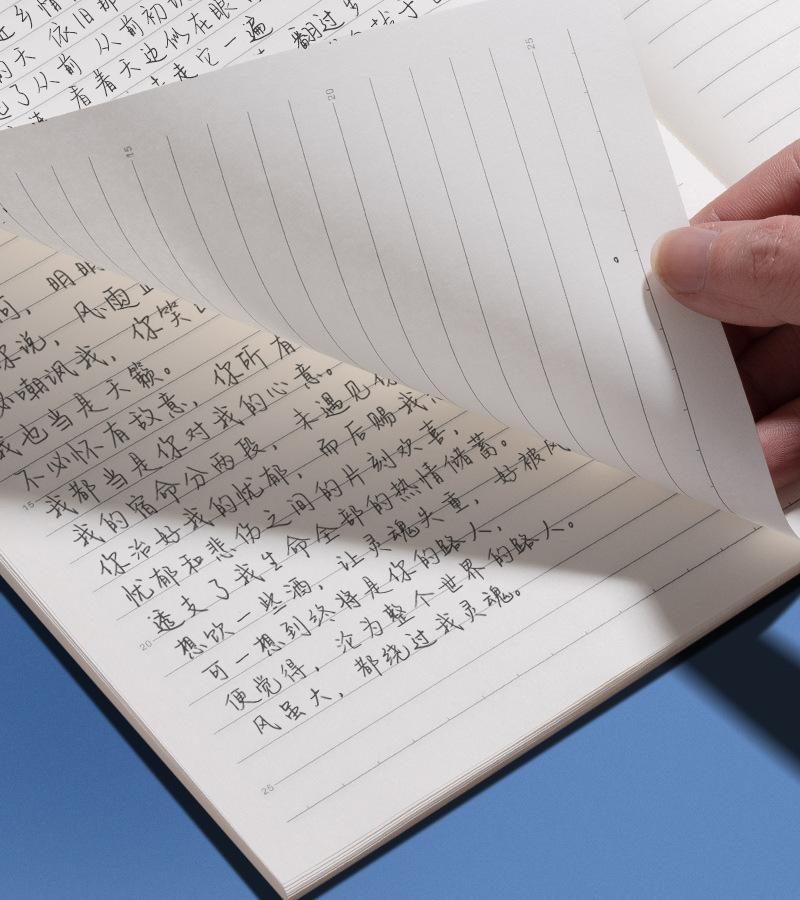 依旧那
从前初
了从前
看着天边似在眼
走它一遍
翻过
15
20
25
明明
你说，风雨
嘲讽我，你笑
我也当是天籁。
不必怀有故意，你所有
我都当是你对我的心意。
我的宿命分两段，未遇见你
你治好我的忧郁，而后赐我
忧郁和悲伤之间的片刻欢喜，
透支了我生命全部的热情储蓄。
想饮一些酒，让灵魂失重，好被风
可一想到终将是你的路人，
便觉得，沦为整个世界的路人。
风虽大，都绕过我灵魂。
15
20
25